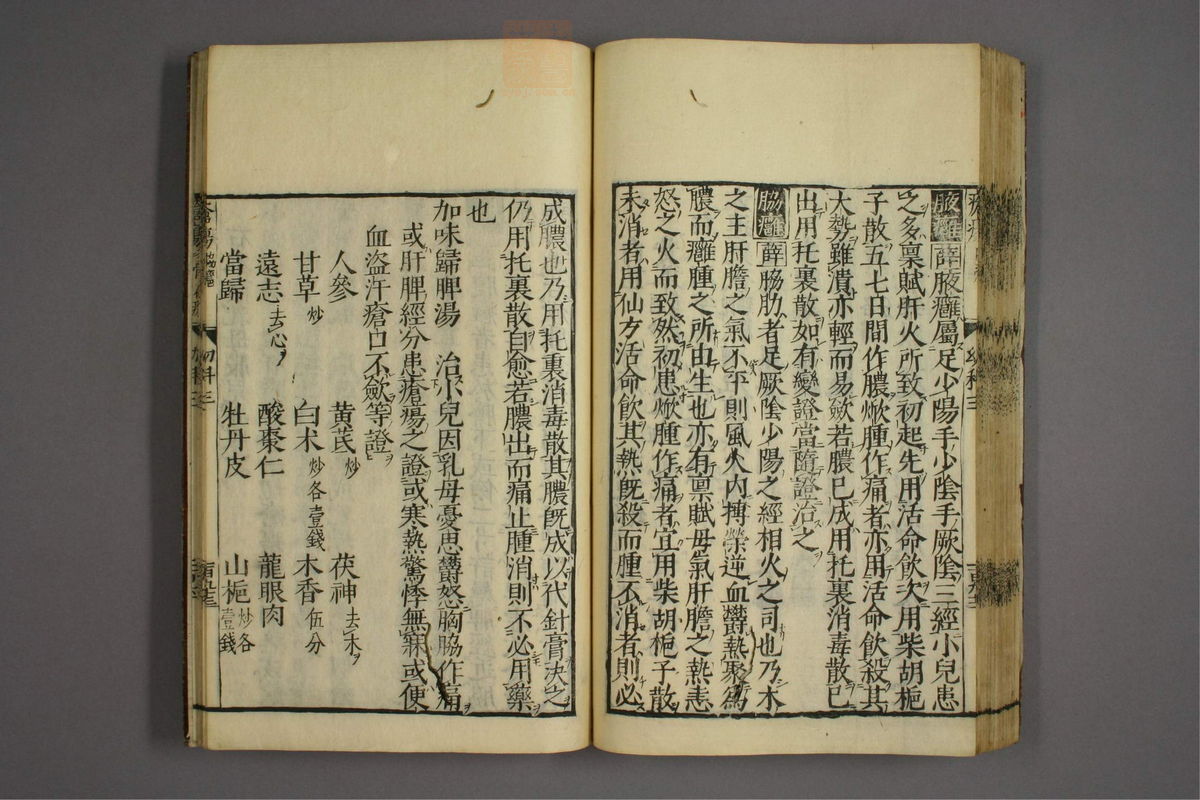 腋癰 薛 腋癰屬足少陽手少陰手厥陰三經小兒患
之多稟賦肝火所致初起先用活命飲次用柴胡梔
子散五七日間作膿焮腫作痛者亦用活命飲殺其
大勢雖潰亦輕而易歛若膿已成用托裏消毒散已
出用托裏散如有變證當隨證治之
脇癰 薛 脇肋者足厥陰少陽之經相火之司也乃木
之主肝膽之氣不平則風火內搏榮逆血欝熱聚為
膿而癰腫之所由生也亦有稟賦母氣肝膽之熱恚
怒之火而致然初患焮腫作痛者宜用柴胡梔子散
未消者用仙方活命飲其熱既殺而腫不消者則必
成膿也乃用托裏消毒散其膿既成以代針膏決之
仍用托裏散自愈若膿出而痛止腫消則不必用藥
也
加味歸脾湯 治小兒因乳母憂思欝怒胸脇作痛
或肝脾經分患瘡瘍之證或寒熱驚悸無寐或便
血盜汗瘡口不歛等證
人參 黃芪炒 茯神去木
甘草炒 白朮炒各壹錢 木香伍分
遠志去心 酸棗仁 龍眼肉
當歸 牡丹皮 山梔炒各壹錢
幼科三